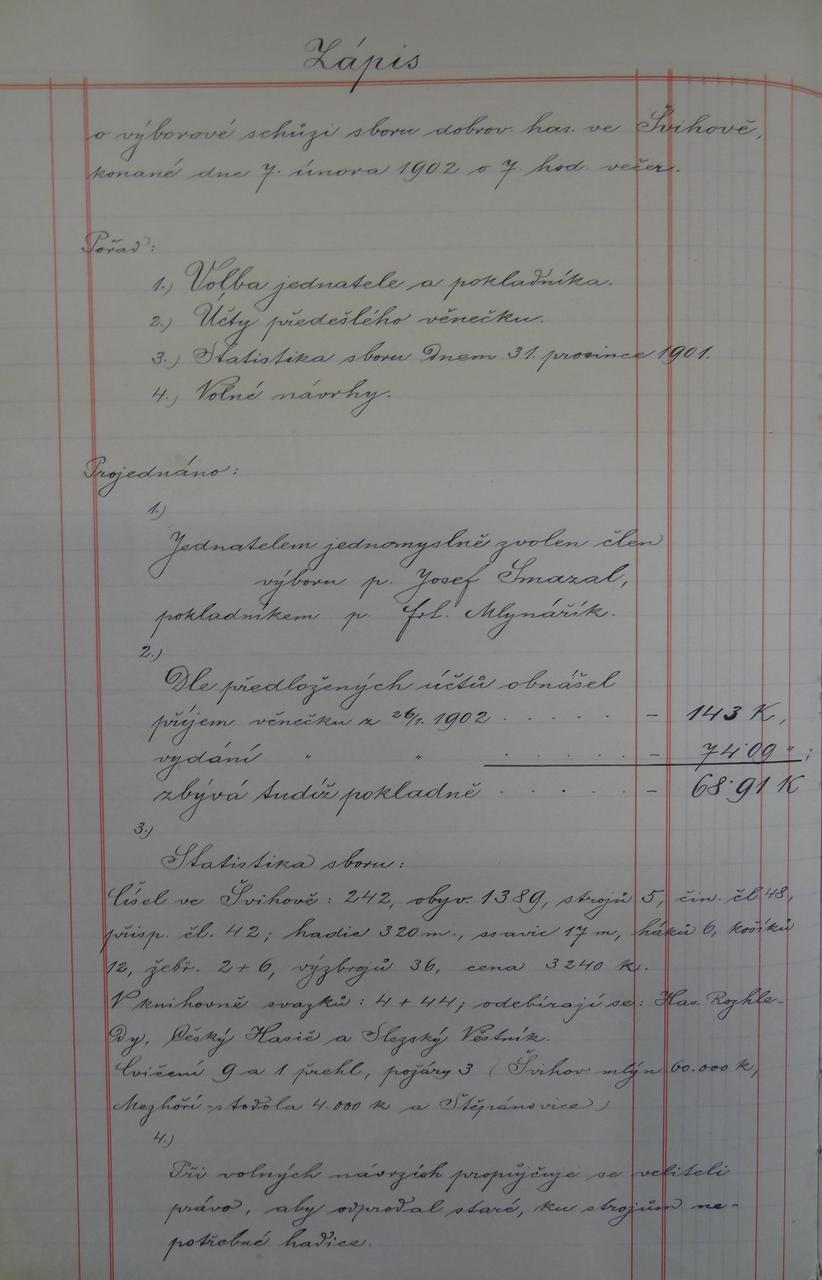 Zápis
o výborové schůzi sboru dobrov. has. ve Švihově,
konané dne 7. února 1902 o 7. hod. večer.
Pořad:
1.) Volba jednatele a pokladníka.
2.) Účty předešlého věnečku.
3.) Statistika sboru dnem 31. prosince 1901.
4.) Volné návrhy.
Projednáno:
1.)
Jednatelem jednomyslně zvolen člen
výboru p. Josef Smazal,
pokladníkem p. Frt. Mlynářík.
2.)
Dle předložených účtů obnášel
příjem věnečku z 26/1. 1902 . . . . . – 143 K,
vydání " " . . . . – 74·09 " ;
zbývá tudíž pokladně . . . . . – 68·91 K
3.)
Statistika sboru:
Čísel ve Švihově: 242, obyv. 1389, strojů 5, čin. čl 48,
přisp. čl. 42; hadic 320 m., ssavic 17 m, háků 6, košíků
12, žebř. 2+6, výzbrojů 36, cena 3240 K.
V knihovně svazků: 4+44; odebírají se: Has. Rozhle-
dy, Český Hasič a Slezský Věstník.
Cvičení 9 a 1 přehl, požáry 3 (Švihov mlýn 60.000 K,
Mezhoří-stodola 4.000 K a Štěpánovice)
4.)
Při volných návrzích propůjčuje se veliteli
právo, aby odprodal staré, ku strojům ne-
potřebné hadice.